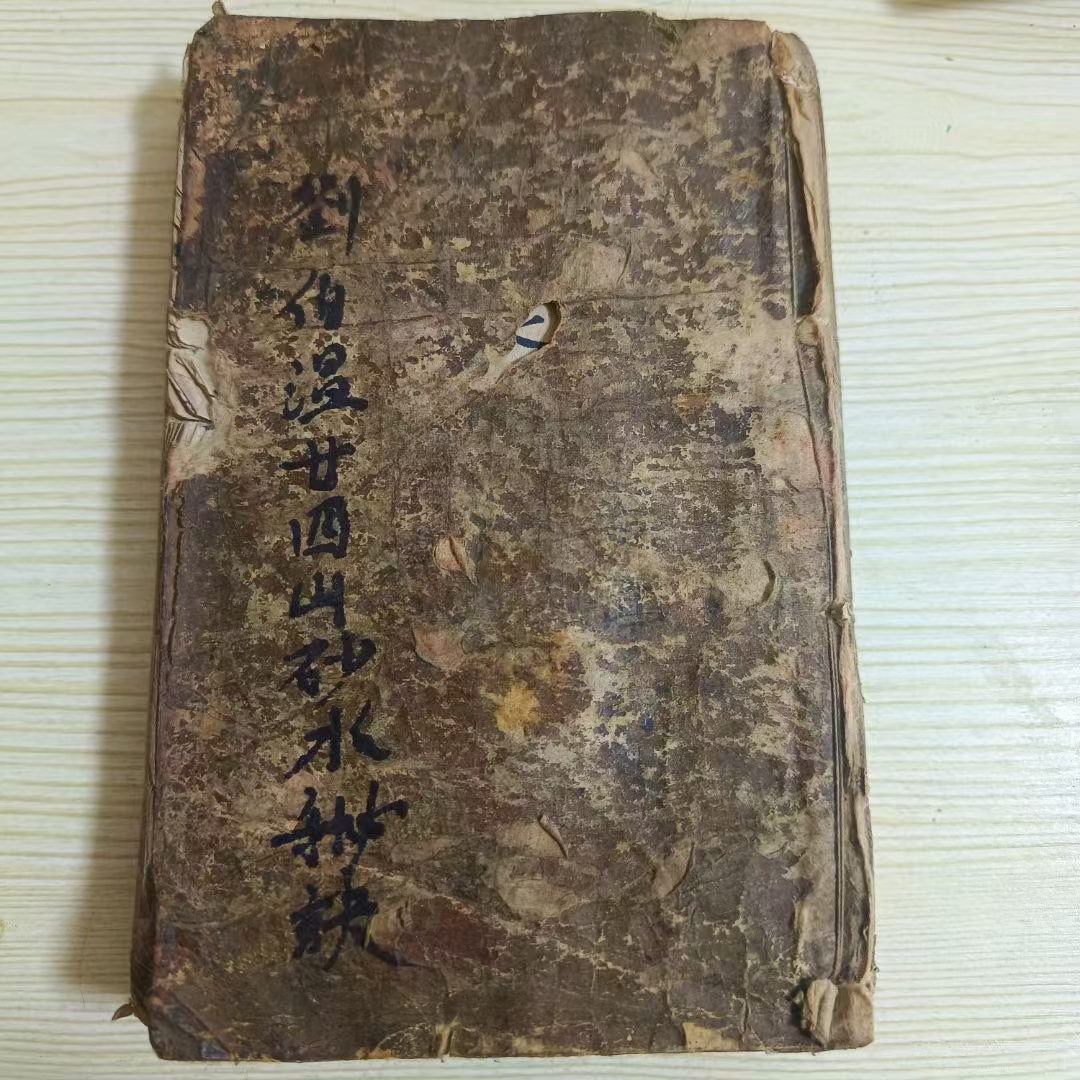 劉伯温廿四山砂水訣